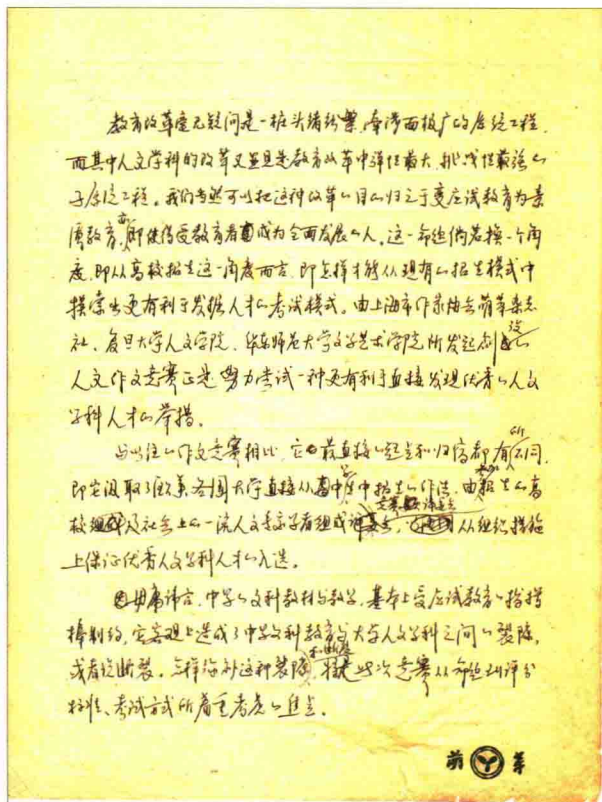 教育改革毫无疑问是一桩头绪纷繁、牵涉面极广的系统工程,
而其中人文学科的改革又显是教育改革中弹性最大、挑战性最强的
子系统工程。我们当然可以把这种改革的目的归之于变应试教育为素
质教育,亦即使得受教育者成为全面发展的人。这一命题倘若换一个角
度,即从高校招生这一角度而言,即怎样才能从现有的招生模式中
摸索出更有利于发掘人才的考试模式。由上海市作家协会萌芽杂志
社、复旦大学人文学院、华东师范大学文学艺术学院所发起创设的
人文作文竞赛正是努力尝试一种更有利于直接发现优秀的人文
学科人才的举措。
与以往的作文竞赛相比,它最直接的起点和归宿都有所不同,
即它汲取了欧美各国大学直接从高中生中招生的作法,由招生的高
校及社会上的一流人文学者组成从组织措施
上保证优秀人文学科人才的入选。
毋庸讳言,中学的文科教材与教学,基本上受应试教育的指挥
棒制约,它客观上造成了中学文科教育与大学人文学科之间的裂隙,
或者说断裂。怎样弥补这种裂隙和断裂,将是此次竞赛从命题到评分
标准、考试方式所着重考虑的焦点。
萌芽